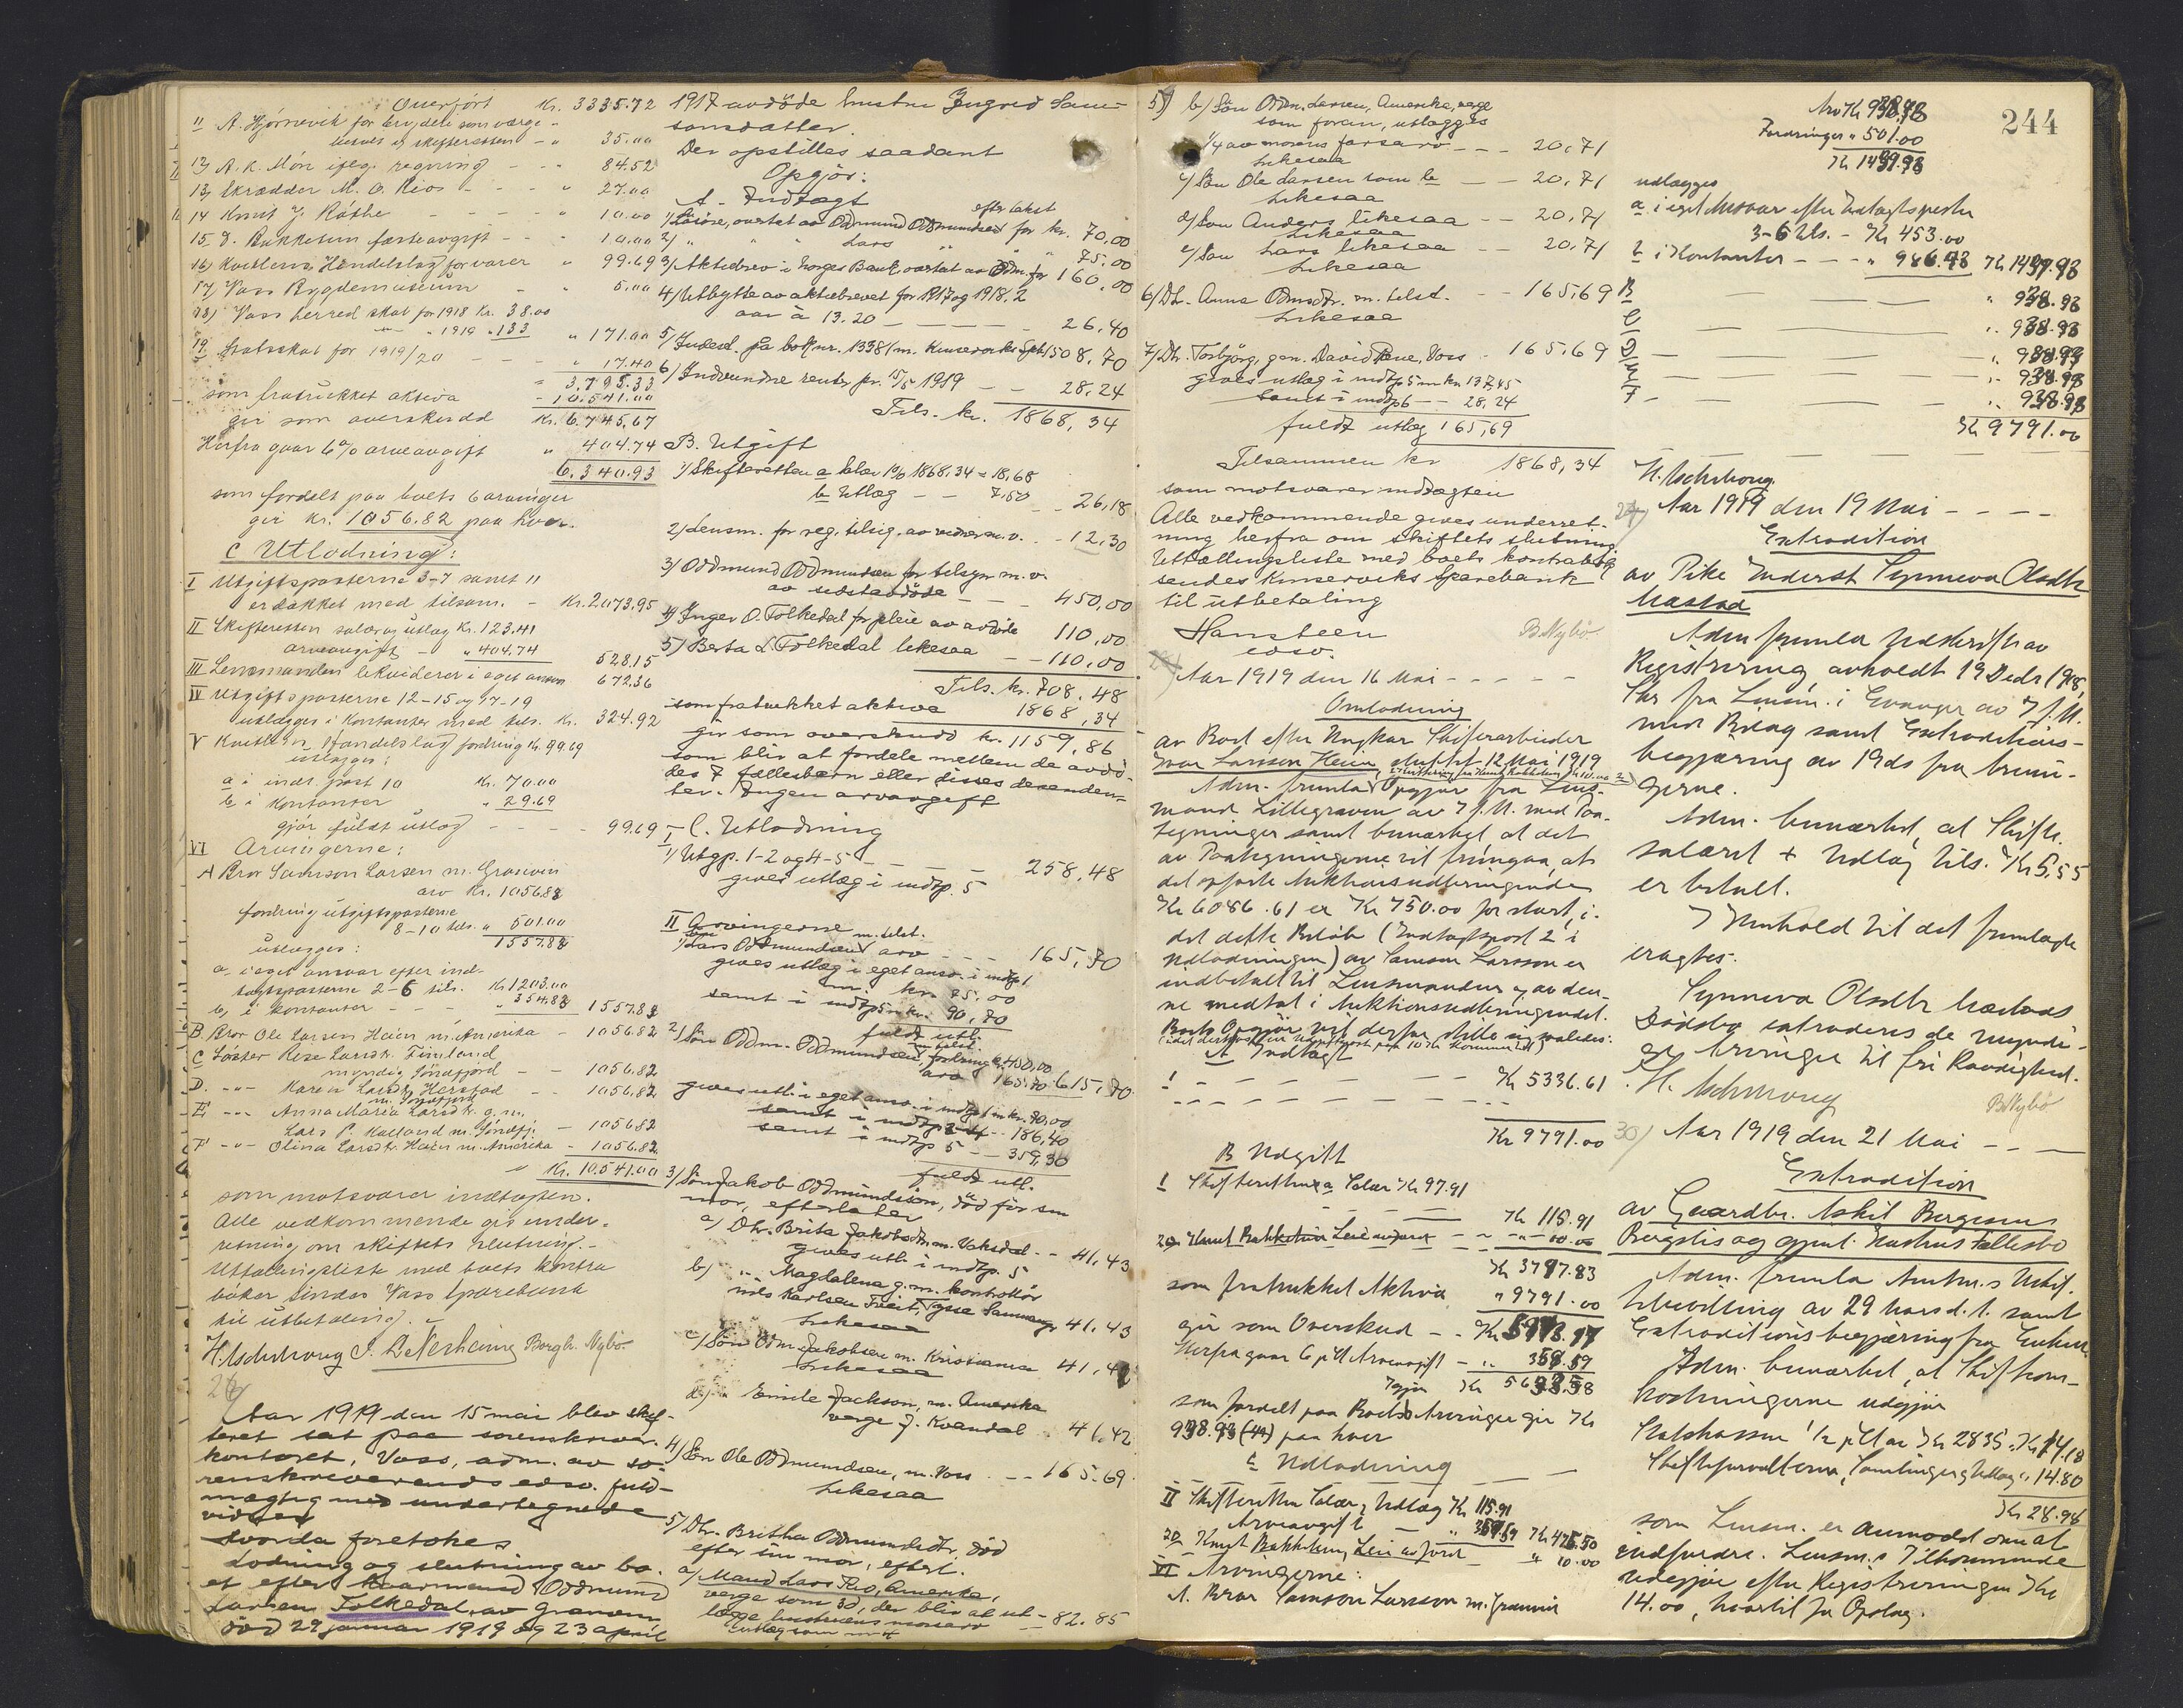 Overført Kr. 3335.72
11 A. Hjørnevik for arvedele som værge
35.00
12) A. K. Món ifлg. regning - - 84.52
13) Skrædder M. O. Rios - - - 27.00
14 Knut J. Røthe - - - - 10.00
15. J. Bakketun fæsteavgift - - 10.00
16) Kvitlens Handelslag for varer " 99.69
17) Voss Bygdemuseum - " 5.00
18) Voss herred skat for 1918 Kr. 38.00
" " 1919 " 133 " 171.00
19 Statsskat for 1919/20 - - - 17.40
3,795.33
som fratrukket aktiva - 10.541.00
gir som overskudd Kr. 6.745,67
Herfra gaar 6% arveavgift " 404.74
6.340.93
som fordelt paa boets 6 arvinger
gir kr. 1056.82 paa hver.
C Utlodning:
I Utgiftsposterne 3-7 samt 11
er dækket med tilsam. - Kr. 2073.95
II Skifteretten salær og utlæg Kr. 123.41
arveavgift - " 404.74
528.15
III Lensmanden likviderer i eget ansvar 672.36
IV Utgiftsposterne 12-15 og 17-19
utlægges i kontanter med tils. Kr. 324.92
V Kvitlens Handelslag fordring Kr. 99.69
utlægges:
a i indt. post 10 Kr. 70.00
b i kontanter " 29.69
gjør fuldt utlæg - - - 99.69
VI Arvingerne:
A Bror Samson Larsen m. Granvin
arv Kr. 1056.82
fordring utgiftsposterne
8-10 tils. " 501.00
1557.82
utlægges:
a, i eget ansvar efter ind-
tægtsposterne 2-6 tils. Kr. 1203.00
b, i kontanter - " 354.82 1557.82
B. Bror Ole Larsen Heien m. Amerika - 1056.82
C Søster Lise Larsdtr. Finland
myndig Søndfjord - - 1056.82
D. -"- Karen Larsdtr. Herstad
m. Søndfjord - - 1056.82
E, -"- Anna Maria Larsdtr. g. m.
Lars P. Kalland m. Søndfj. - 1056.82
F -"- Olina Larsdtr. Heien m. Amerika - 1056.82
" Kr. 10.541.00
som motsvarer indtægten.
Alle vedkommende gis under-
retning om skiftets slutning.-
Utfallingsliste med boets kontra
bøker sendes Voss Sparebank
til utbetaling.
H. Aschehoug J. Borgh. Nybø
26)
Aar 1919 den 15 mai blev skif-
teret sat paa sorenskriver-
kontoret, Voss, adm. av so-
renskriverens edsv. fuld-
mægtig med undertegnede
vidner
Hvorda foretokes
Lodning og slutning av bo-
et efter Kaarmand Oddmund
Larsen Folkedal, av Granvin
död 29 januar 1919 og 23 april
1917 avdöde hustru Ingrid Sam-
sonsdatter.
Der opstilles saadant
Opgjör:
A - Indtægt
efter takst
1) Lösöre, overtat av Oddmund Oddmundsen for kr. 70,00
2) " " " Lars " " " 75.00
3) Aktiebrev i Norges Bank overtat av Oddm. for 160,00
4) Utbytte av aktiebrevet for 1917 og 1918, 2
aar à 13.20 - - - - - 26,40
5) Indest. på bok nr. 1338 m. Kinserviks Spb. 1508,70
6) Indvundne renter pr. 15/5 1919 - - 28,24
Tils. kr. 1868,34
B. Utgift
1) Skifteretten a salær 1% 1868,34 = 18,68
b Utlæg - - 7,50 - - 26,18
2) Lensm. for reg. tilsig. av vidner m. v. - - 12,30
3) Oddmund Oddmundsen for tilsyn m. v.
av sidstavdöde - - - 450,00
4) Inger O. Folkedal for pleie av avdöde 110,00
5) Berta L. Folkedal likesaa - - 110,00
Tils. kr. 708,48
som fratrukket aktiva 1868,34
gir som overskudd kr. 1159,86
som blir at fordele mellem de avdö-
des 7 fællesbarn eller disses descenden-
ter. Ingen arvavgift
C. Utlodning
I/ Utgp. 1-2 og 4-5 - - - - 258,48
gives utlæg i indtp. 5
II Arvingerne
1) Sön Lars Oddmundsen m. tilst. arv - - - 165,70
gives utlæg i eget ansv. i indtp 1
m. kr. 75,00
samt i indtp 5 m kr. 90,70
fuldt utl.
2) Sön Oddm. Oddmundsen, m tilst. fordring kr. 450,00
arv 165.70 615,70
gives utl. i eget ansv. i indtp 1 m kr. 70,00
samt i indtp 3-4 - 186,40
samt i indtp 5 - - 359,30
fuldt utl.
3) Sön Jakob Oddmundsen, död för sin
mor, efterlater
a) Dtr. Brita Jakobsdtr. m. Vaksdal - - 41,43
gives utl. i indtp. 5
b) " Magdalena g. m. kontrollör
Nils Karlsen Treit, Tysse Samnanger 41,43
Likesaa
c) Sön Oddm. Jakobsen m. Kristiania 41,42
Likesaa
d) " Emile Jackson, m. Amerika
verge J. Kvandal - - 41,42
4) Sön Ole Oddmundsen, m. Voss - - 165.69
Likesaa
5) Dtr. Britha Oddmundsdtr. död
efter sin mor, efterl.
a) Mand Lars Rio, Amerika,
verge som 3d, der blir at ut-
lægge hustruens morsarv - 82.85
Utlæg som nr 4
5) b) Sön Oddm. Larsen, Amerika, verge
som foran, utlægges
1/4 av morens farsarv - - - 20,71
Likesaa
c) Sön Ole Larsen som b - - 20,71
Likesaa
d) Sön Anders likesaa - - 20,71
Likesaa
e) Sön Lars likesaa - - 20,71
Likesaa
6) Dtr. Anna Oddmdtr. m. tilst. - - 165,69
Likesaa
7) Dtr. Torbjörg, gm. David Rene, Voss - 165,69
gives utlæg i indtp 5 m kr 137,45
samt i indtp 6 - - 28,24
fuldt utlæg 165,69
Tilsammen kr 1868,34
som motsvarer indtægten
Alle vedkommende gives underret-
ning herfra om skiftets slutning
Utfællingsliste med boets kontrabok
sendes Kinserviks Sparebank
til utbetaling
Hansteen B. Nybø
edsv.
Aar 1919 den 16 Mai - - - - -
Omlodning
av Boet efter Ungkar Skiferarbeider
Ivar Larsson Heien, sluttet 12 Mai 1919
Adm. fremla Opgjør fra Lens-
mand Lillegraven av 7 f. M. med Paa-
tegninger samt bemærket at det
av Paategningerne vil fremgaa, at
det opførte Auktionsudbringende
Kr 6086.61 er Kr 750.00 for stort, i-
det dette Beløb (Indtægtspost 2 i
Udlodningen) av Samson Larsson er
indbetalt til Lensmanden og av den-
ne medtat i Auktionsudbringendet.
Boets Opgjør vil derfor stille sig saaledes:
A Indtægt
1 - - - - - - Kr 5336.61
- - - - - - - - -
Kr 9791.00
B Udgift
1 Skifteretten a Salær Kr 97.91
- - - - Kr 115.91
20 Knut Bakketun Leie av jord - - " 10.00
Kr 3797.83
som fratrukket Aktiva " 9791.00
gir som Overskud - - Kr 5993.17
Herfra gaar 6 pct Arveavgift - " 359.59
Igjen Kr 5633.58
som fordelt paa Boets 6 Arvinger gir Kr
938.93 paa hver
C Udlodning
II Skifteretten Salær, Utlæg Kr 115.91
Arveavgift - " 359.59 Kr 475.50
20 Knut Bakketun, Leie av jord - " 10.00
VI Arvingerne:
A. Bror Samson Larsson m. Granvin
244
Arv Kr 938.93
Fordringer " 501.00
Kr 1439.93
udlægges
a. i eget Ansvar efter Indtægtsposter
3-6 tils. - Kr 453.00
b. i Kontanter - - - " 986.93 Kr 1439.93
B " 938.93
C " 938.93
D " 938.93
E " 938.93
F " 938.93
Kr 9791.00
H. Aschehoug
29) Aar 1919 den 19 Mai - - - -
Extradition
av Pike Inderst Synneva Olsdtr
Mastad
Adm fremla Udskrift av
Registrering avholdt 19 Decbr 1918,
Skr fra Lensm. i Evanger av 7 f. M.
med Bilag samt Extraditions-
begjæring av 19 ds fra Arvin-
gerne.
Adm. bemærket, at Skifte-
salæret + Udlæg tils. Kr 5.55
er betalt.
I Henhold til det fremlagte
eragtes:
Synneva Olsdtr Mæstads
Dødsbo extraderes de myndi-
ge Arvinger til fri Raadighed.
H. Aschehoug B. Nybø
30) Aar 1919 den 21 Mai - -
Extradition
av Gaardbr. Askil Bergesens
Bergslis og gjenl. Hustrus Fællesbo
Adm. fremla Amtm.s Uskif-
tebevilling av 29 Mars d. A. samt
Extraditionsbegjæring fra Enken.
Adm. bemærket, at Skifteom-
kostningerne udgjør
Statskassen 1/2 pct av Kr 2835 = Kr 14.18
Skifteforvalteren, Samlinger & Utlæg " 14.80
Kr 28.98
som Lensm. er anmodet om at
indfordre. Lensm.s Tilkommende
udgjør efter Registreringen Kr
14.00, hvortil for Opslag.